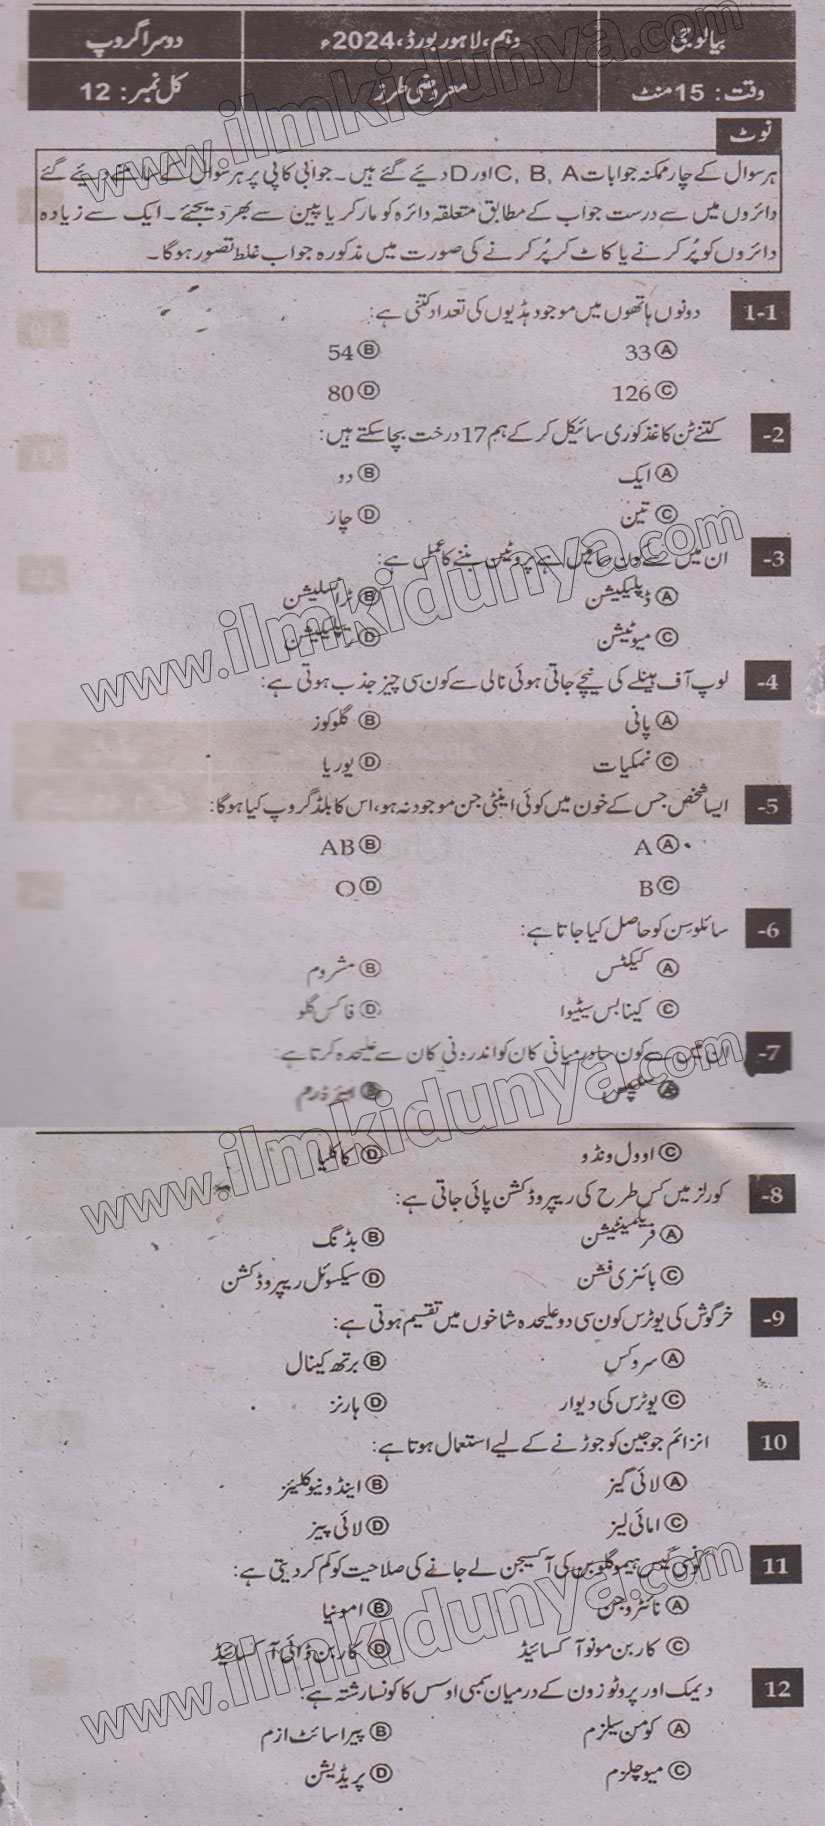 بیالوجی دہم، لاہور بورڈ، 2024ء دوسرا گروپ
وقت: 15 منٹ معروضی طرز کل نمبر: 12
نوٹ
ہر سوال کے چار ممکنہ جوابات C, B, A اور D دیئے گئے ہیں۔ جوابی کاپی پر ہر سوال کے سامنے دیئے گئے
دائروں میں سے درست جواب کے مطابق متعلقہ دائرہ کو مارکر یا پین سے بھر دیجئے۔ ایک سے زیادہ
دائروں کو پُر کرنے یا کاٹ کر پُر کرنے کی صورت میں مذکورہ جواب غلط تصور ہوگا۔
1-1 دونوں ہاتھوں میں موجود ہڈیوں کی تعداد کتنی ہے:
Ⓐ 33 Ⓑ 54
Ⓒ 126 Ⓓ 80
2- کتنے ٹن کاغذ کو ری سائیکل کر کے ہم 17 درخت بچا سکتے ہیں:
Ⓐ ایک Ⓑ دو
Ⓒ تین Ⓓ چار
3- ان میں سے کون سا میں ہے پروٹین بننے کا عمل ہے:
Ⓐ ڈپلیکیشن Ⓑ ٹرانسلیشن
Ⓒ میوٹیشن Ⓓ
4- لوپ آف ہینلے کی نیچے جاتی ہوئی نالی سے کون سی چیز جذب ہوتی ہے:
Ⓐ پانی Ⓑ گلوکوز
Ⓒ نمکیات Ⓓ یوریا
5- ایسا شخص جس کے خون میں کوئی اینٹی جن موجود نہ ہو، اس کا بلڈ گروپ کیا ہوگا:
Ⓐ A Ⓑ AB
Ⓒ B Ⓓ O
6- سائلوسِن کو حاصل کیا جاتا ہے:
Ⓐ کیکٹس Ⓑ مشروم
Ⓒ کینابس سیٹیوا Ⓓ فاکس گلو
7- ان میں سے کون سا درمیانی کان کو اندرونی کان سے علیحدہ کرتا ہے
Ⓐ سٹیپس Ⓑ ایئر ڈرم
Ⓒ اوول ونڈو Ⓓ کاکلیا
8- کورلز میں کس طرح کی ریپروڈکشن پائی جاتی ہے:
Ⓐ فریگمینٹیشن Ⓑ بڈنگ
Ⓒ بائنری فشن Ⓓ سیکسوئل ریپروڈکشن
9- خرگوش کی یوٹرس کون سی دو علیحدہ شاخوں میں تقسیم ہوتی ہے:
Ⓐ سروکس Ⓑ برتھ کینال
Ⓒ یوٹرس کی دیوار Ⓓ ہارنز
10 انزائم جو جین کو جوڑنے کے لیے استعمال ہوتا ہے:
Ⓐ لائی گیز Ⓑ اینڈونیوکلیئز
Ⓒ امائی لیز Ⓓ لائی پیز
11 کونسی گیس ہیموگلوبن کی آکسیجن لے جانے کی صلاحیت کو کم کر دیتی ہے:
Ⓐ نائٹروجن Ⓑ امونیا
Ⓒ کاربن مونوآکسائیڈ Ⓓ کاربن ڈائی آکسائیڈ
12 دیمک اور پروٹوزون کے درمیان سمبی اوسس کا کونسا رشتہ ہے:
Ⓐ کومن سیلزم Ⓑ پیراسائٹ ازم
Ⓒ میوچلزم Ⓓ پریڈیشن
www.ilmkidunya.com
www.ilmkidunya.com
www.ilmkidunya.com
www.ilmkidunya.com